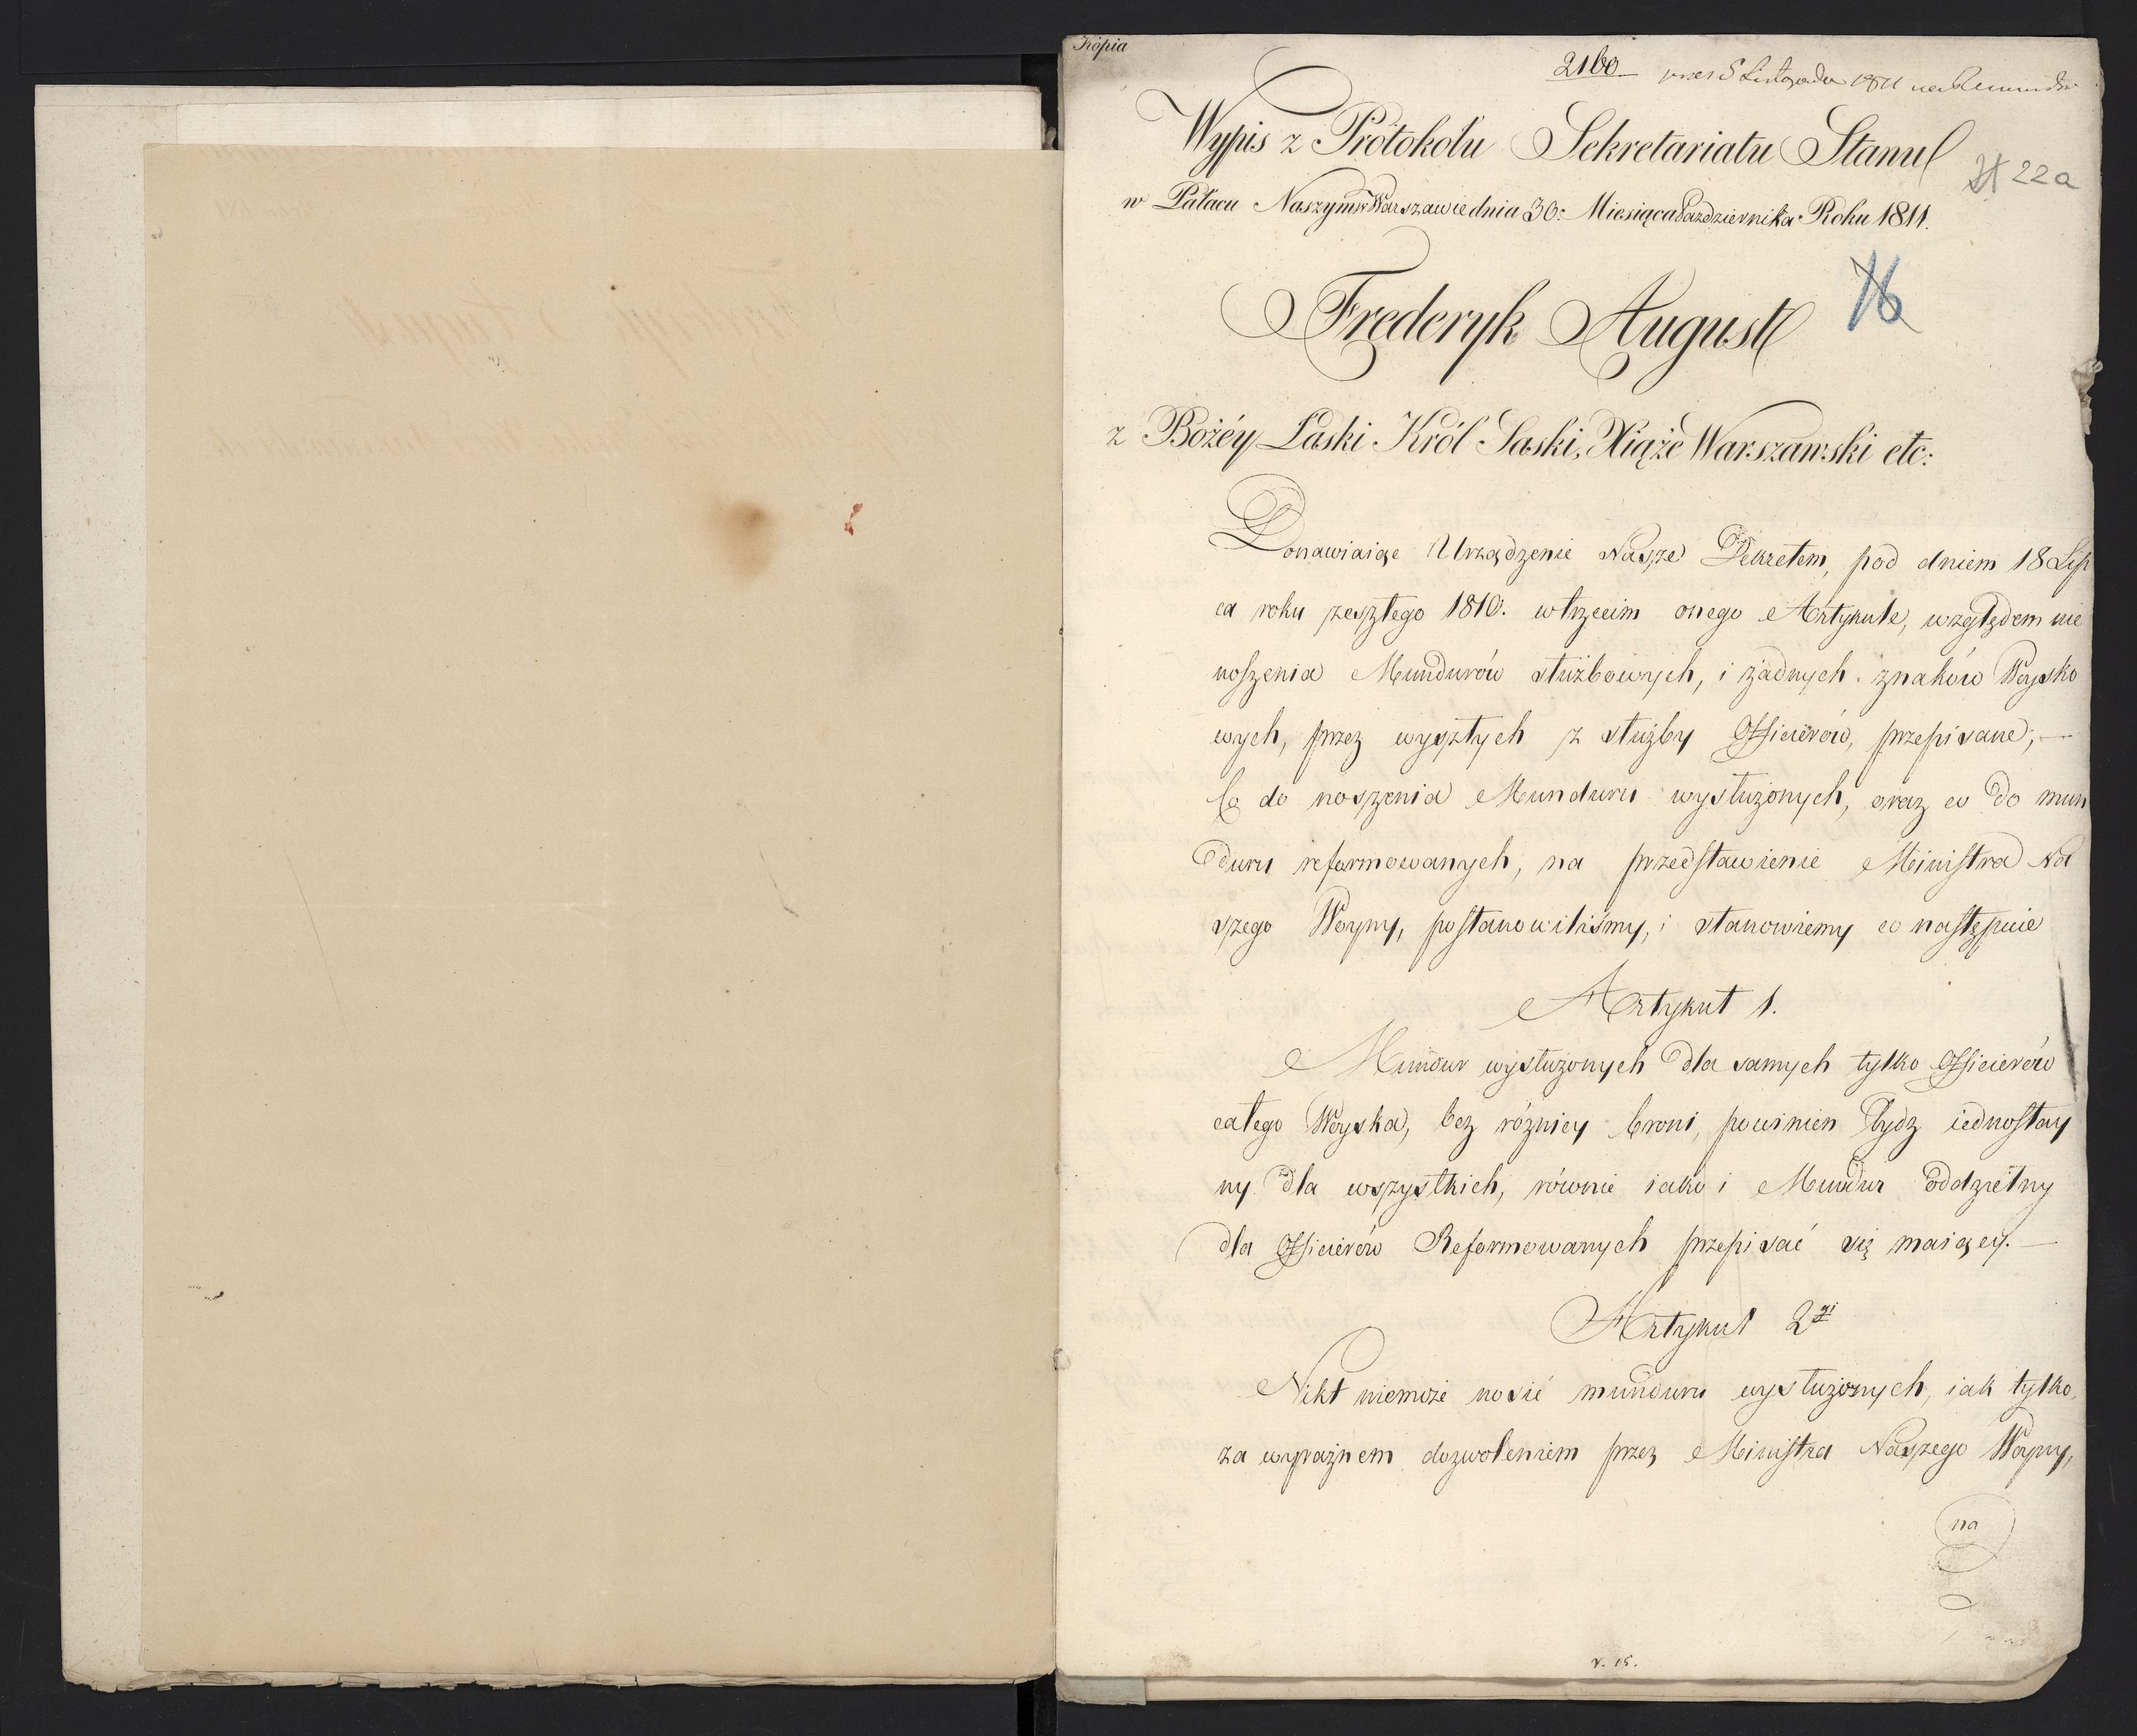 Kopia
2160
Listopada 1811
Wypis z Protokołu Sekretariatu Stanu
22a
w Pałacu Naszym w Warszawie dnia 30: Miesiąca Października Roku 1811.
Frederyk August
76
z Bożéy Łaski Król Saski, Xiąże Warszawski etc:
Ponawiaiąc Urządzenie Nasze Dekretem, pod dniem 18 Lip
ca roku zeszłego 1810. w trzecim onego Artykule, względem nie
noszenia Mundurów służbowych, i żadnych znaków Woysko
wych, przez wyszłych z służby Officierów, przepisane, —
Co do noszenia Munduru wysłużonych, oraz co do mun
duru reformowanych, na przedstawienie Ministra Na
szego Woyny, postanowiliśmy, i stanowiemy co następuie
Artykuł 1.
Mundur wysłużonych dla samych tylko Officierów
całego Woyska, bez różnicy broni, powinien bydz iednostay
ny dla wszystkich, równie iako i Mundur oddzielny
dla Officierów Reformowanych przepisać się maiący. —
Artykuł 2gi
Nikt niemoże nosić munduru wysłużonych, iak tylko
za wyraźnem dozwoleniem przez Ministra Naszego Woyny,
na
v. 18.